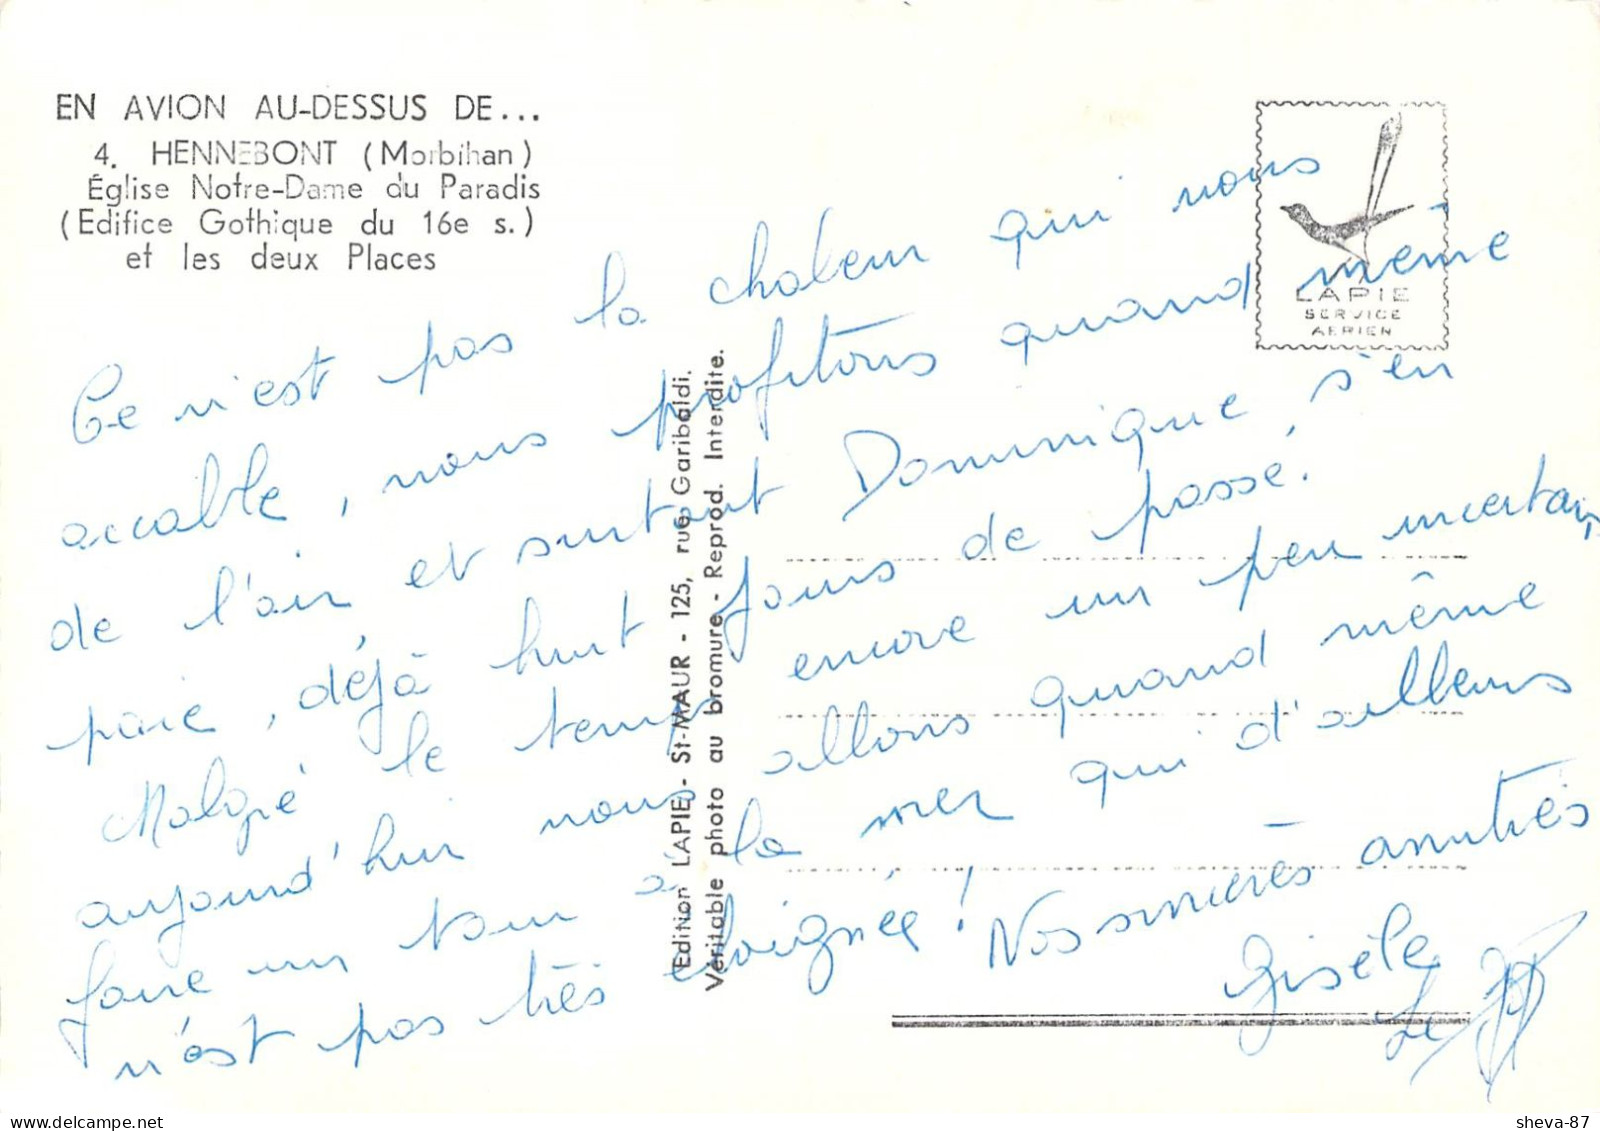 EN AVION AU-DESSUS DE...
4. HENNEBONT (Morbihan)
Église Notre-Dame du Paradis
(Edifice Gothique du 16e s.)
et les deux Places
LAPIE
SERVICE
AERIEN
Edition LAPIE - St-MAUR - 125, rue Garibaldi.
Véritable photo au bromure - Reprod. Interdite.
Ce n'est pas la chaleur qui nous
accable, nous profitons quand même
de l'air et surtout Dominique s'en
paie, déjà huit jours de passé.
Malgré le temps encore un peu incertain,
aujourd'hui nous allons quand même
faire un tour à la mer qui d'ailleurs
n'est pas très éloignée! Nos sincères amitiés
Gisèle
sheva-87